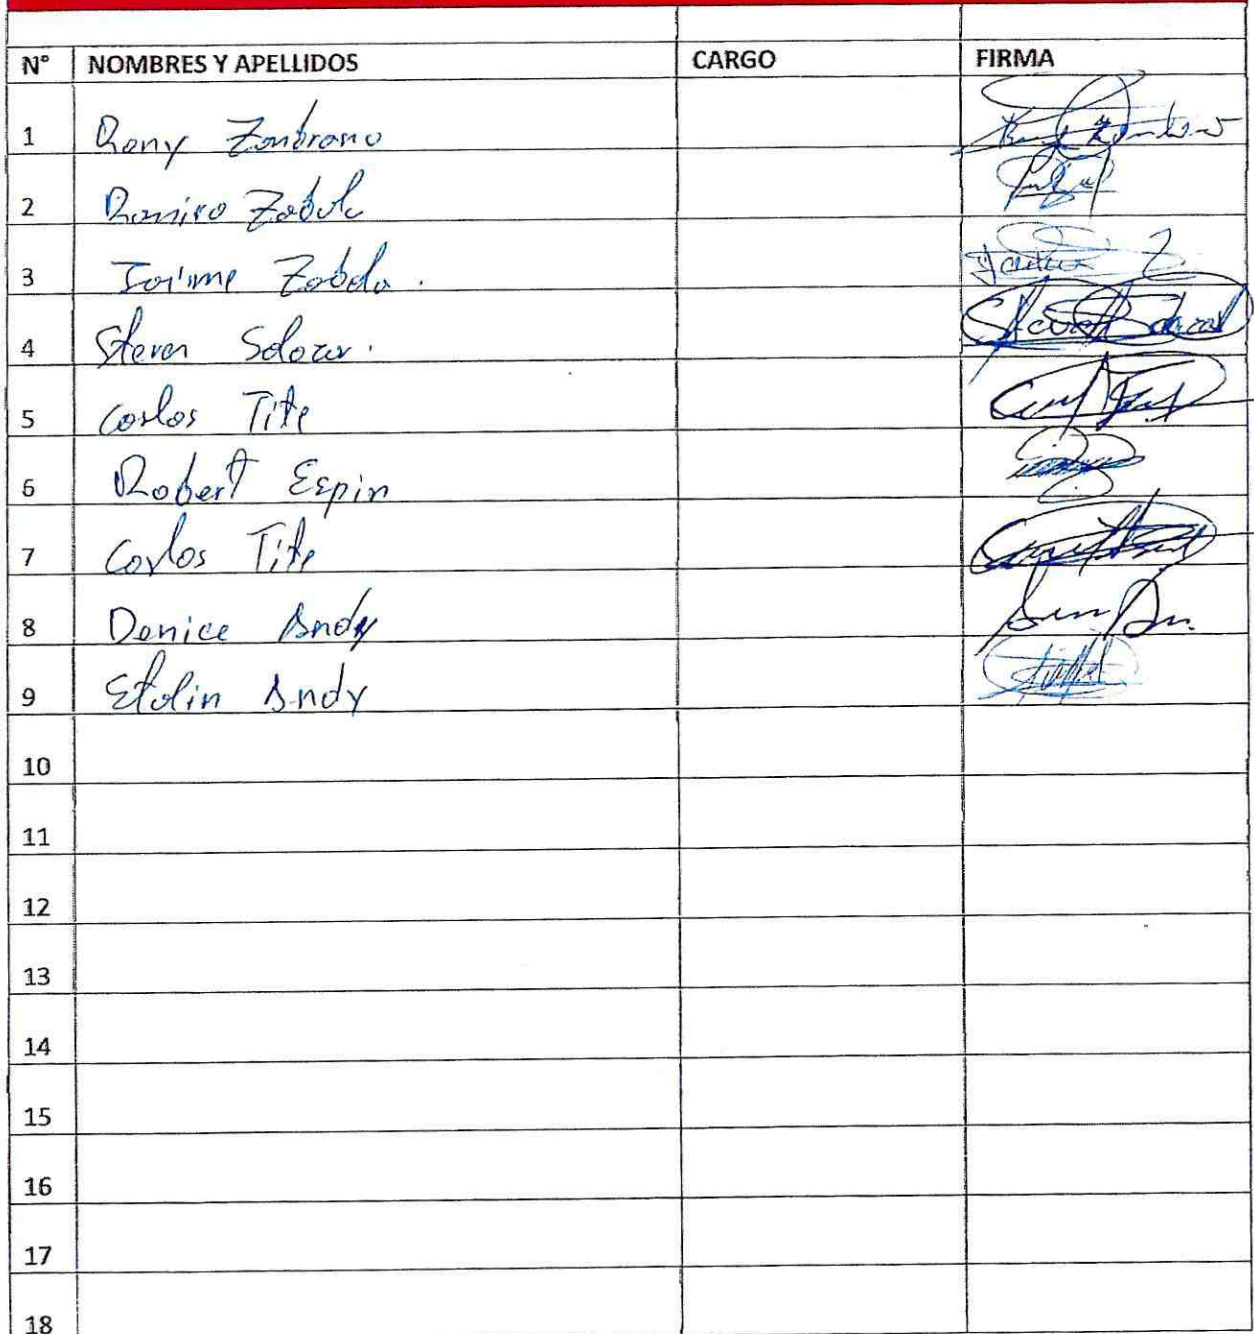 N° NOMBRES Y APELLIDOS CARGO FIRMA
1 Rony Zambrano
2 Ramiro Zabala
3 Jaime Zabala.
4 Steven Salazar.
5 Carlos Tite
6 Robert Espin
7 Carlos Tite
8 Denice Andy
9 Etolin Andy
10
11
12
13
14
15
16
17
18